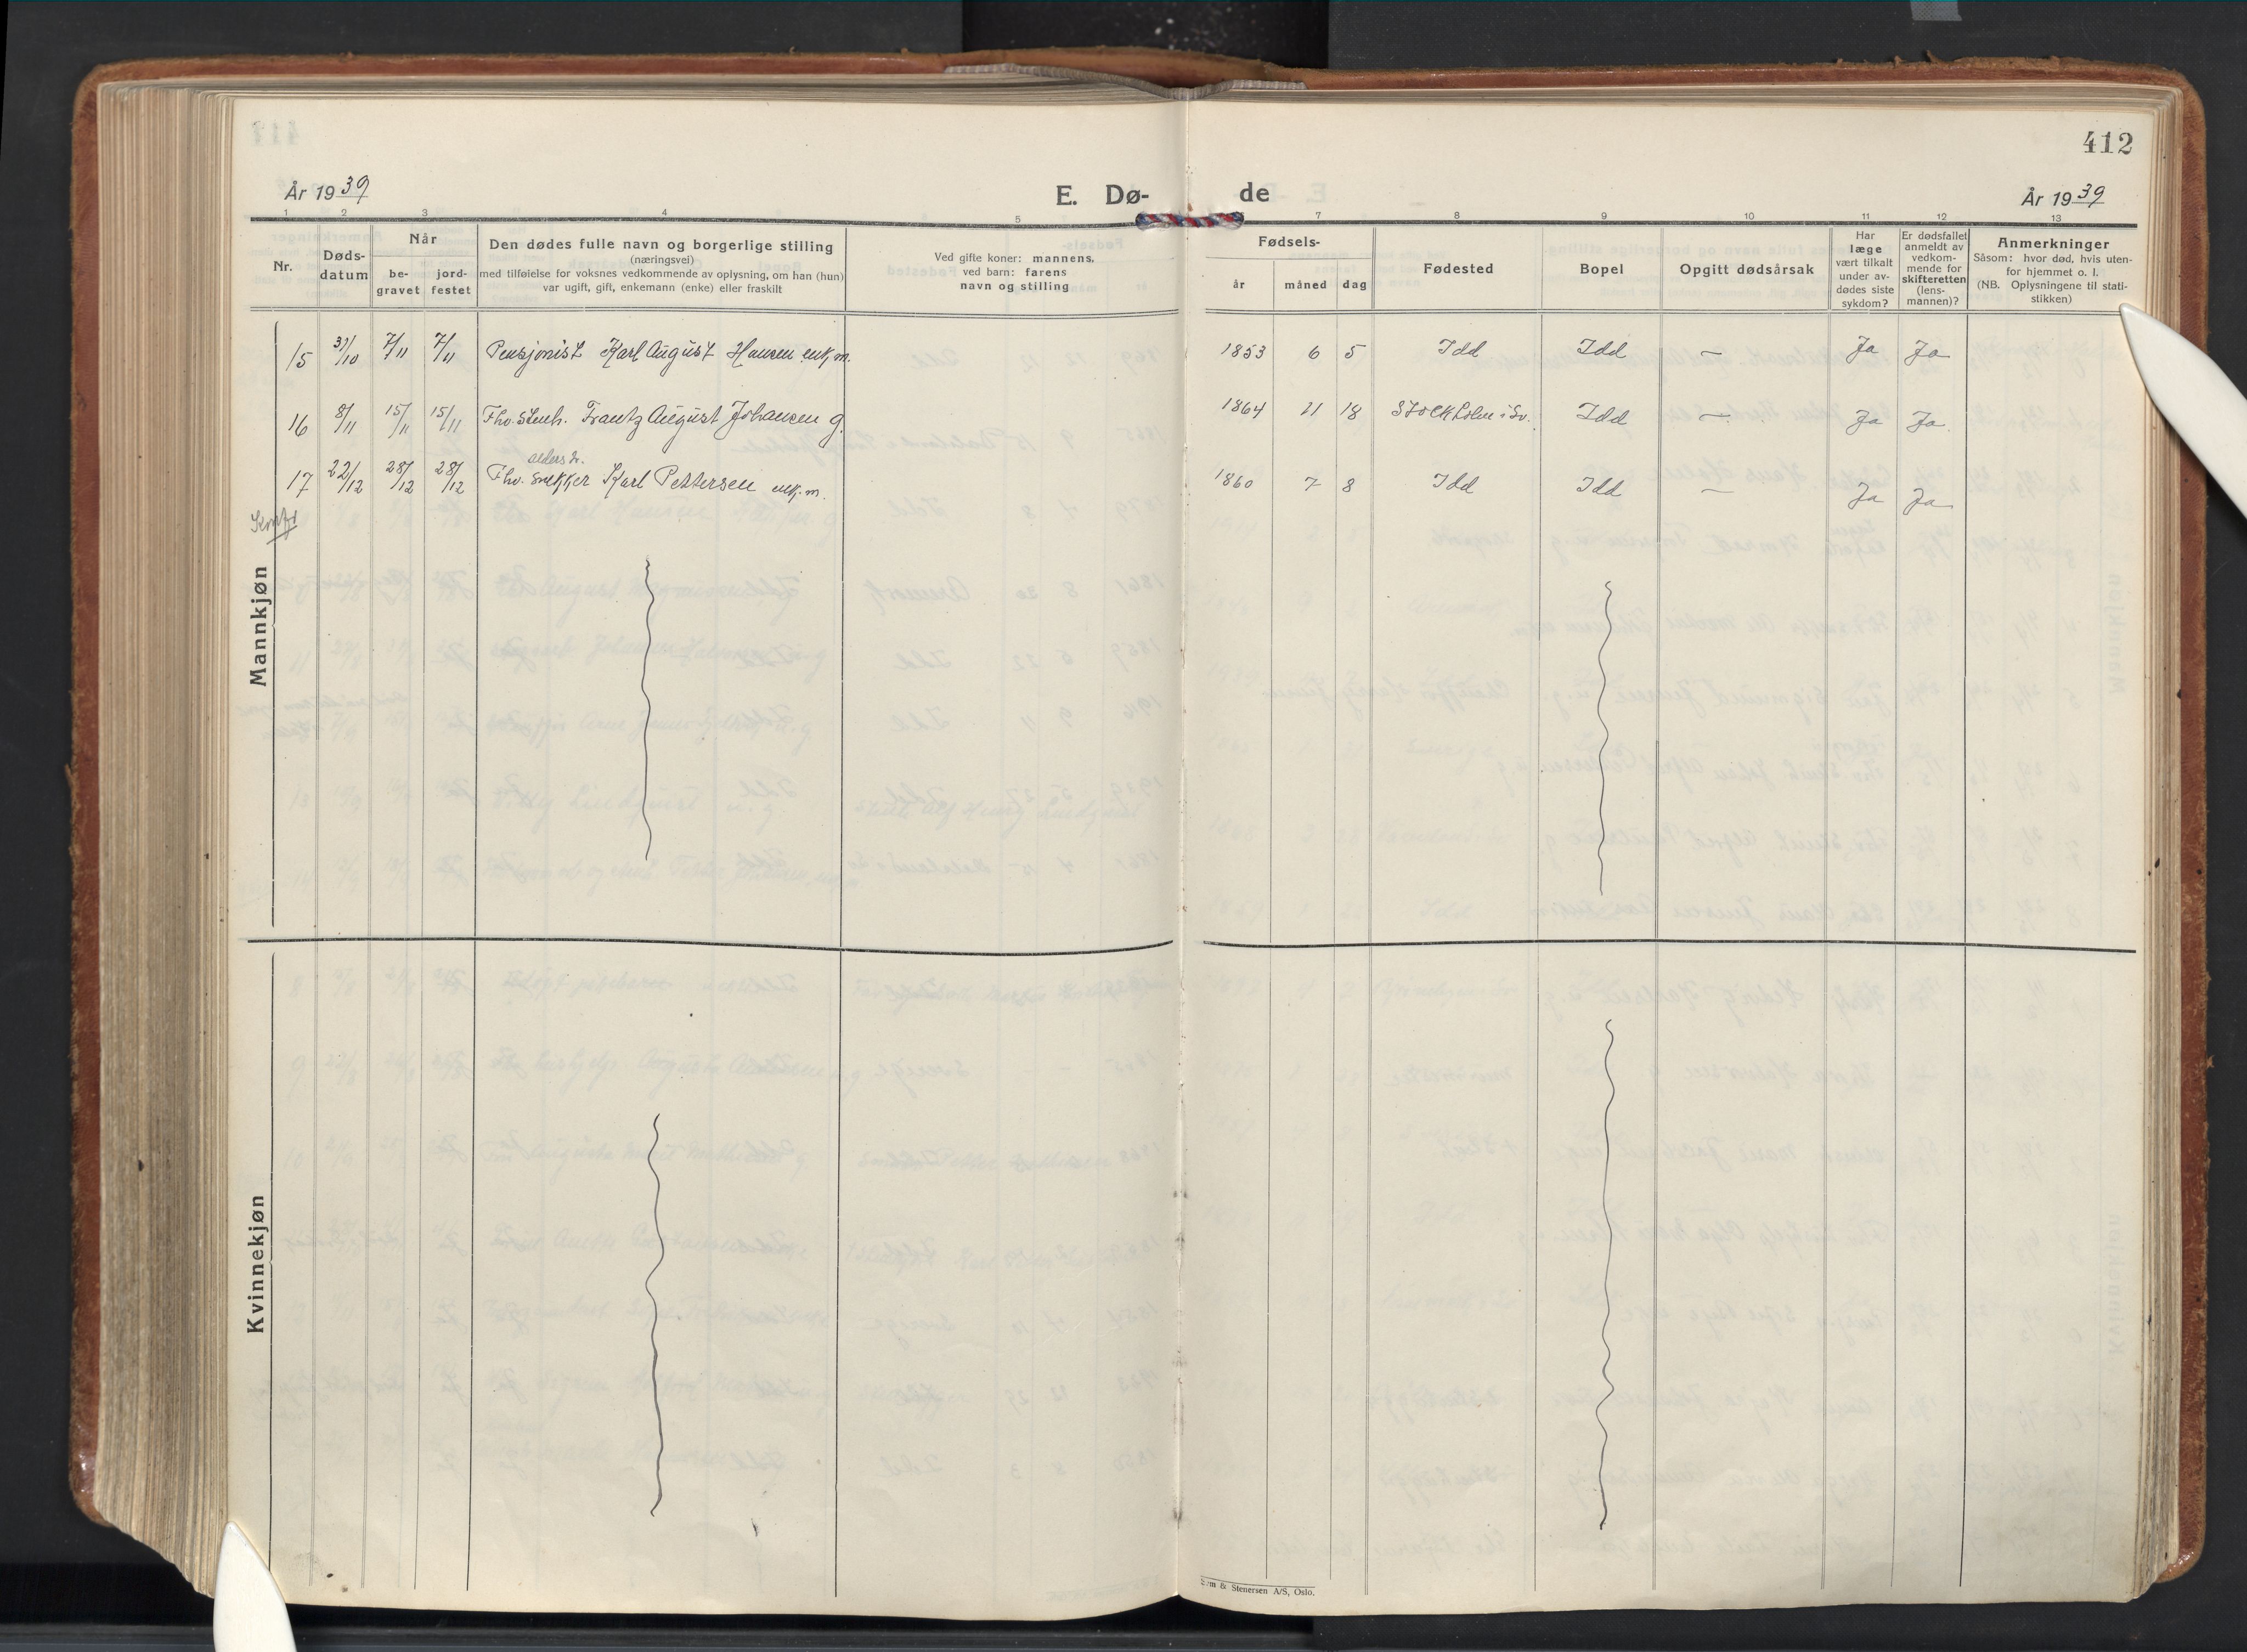 412
År 1939
E. Dø-
de
År 1939
1 2 3 4 5 7 8 9 10 11 12 13
Nr.
Døds-
datum
Når
be-
gravet
jord-
festet
Den dødes fulle navn og borgerlige stilling
(næringsvei)
med tilføielse for voksnes vedkommende av oplysning, om han (hun)
var ugift, gift, enkemann (enke) eller fraskilt
Ved gifte koner: mannens,
ved barn: farens
navn og stilling
Fødsels-
år måned dag
Fødested
Bopel
Opgitt dødsårsak
Har
læge
vært tilkalt
under av-
dødes siste
sykdom?
Er dødsfallet
anmeldt av
vedkom-
mende for
skifteretten
(lens-
mannen)?
Anmerkninger
Såsom: hvor død, hvis uten-
for hjemmet o. l.
(NB. Oplysningene til stati-
stikken)
15 31/10 7/11 7/11 Pensjonist Karl August Hansen enk.m. 1853 6 5 Idd Idd — Ja Ja
16 8/11 15/11 15/11 Fhv. Stenh. Frantz August Johansen g. 1864 11 18 Stockholm i Sv. Idd — Ja Ja
alders tr.
17 22/12 28/12 28/12 Fhv. Snekker Karl Pettersen enk.m. 1860 7 8 Idd Idd — Ja Ja
Konf
Mannkjøn
Kvinnekjøn
& Stenersen A/S, Oslo.